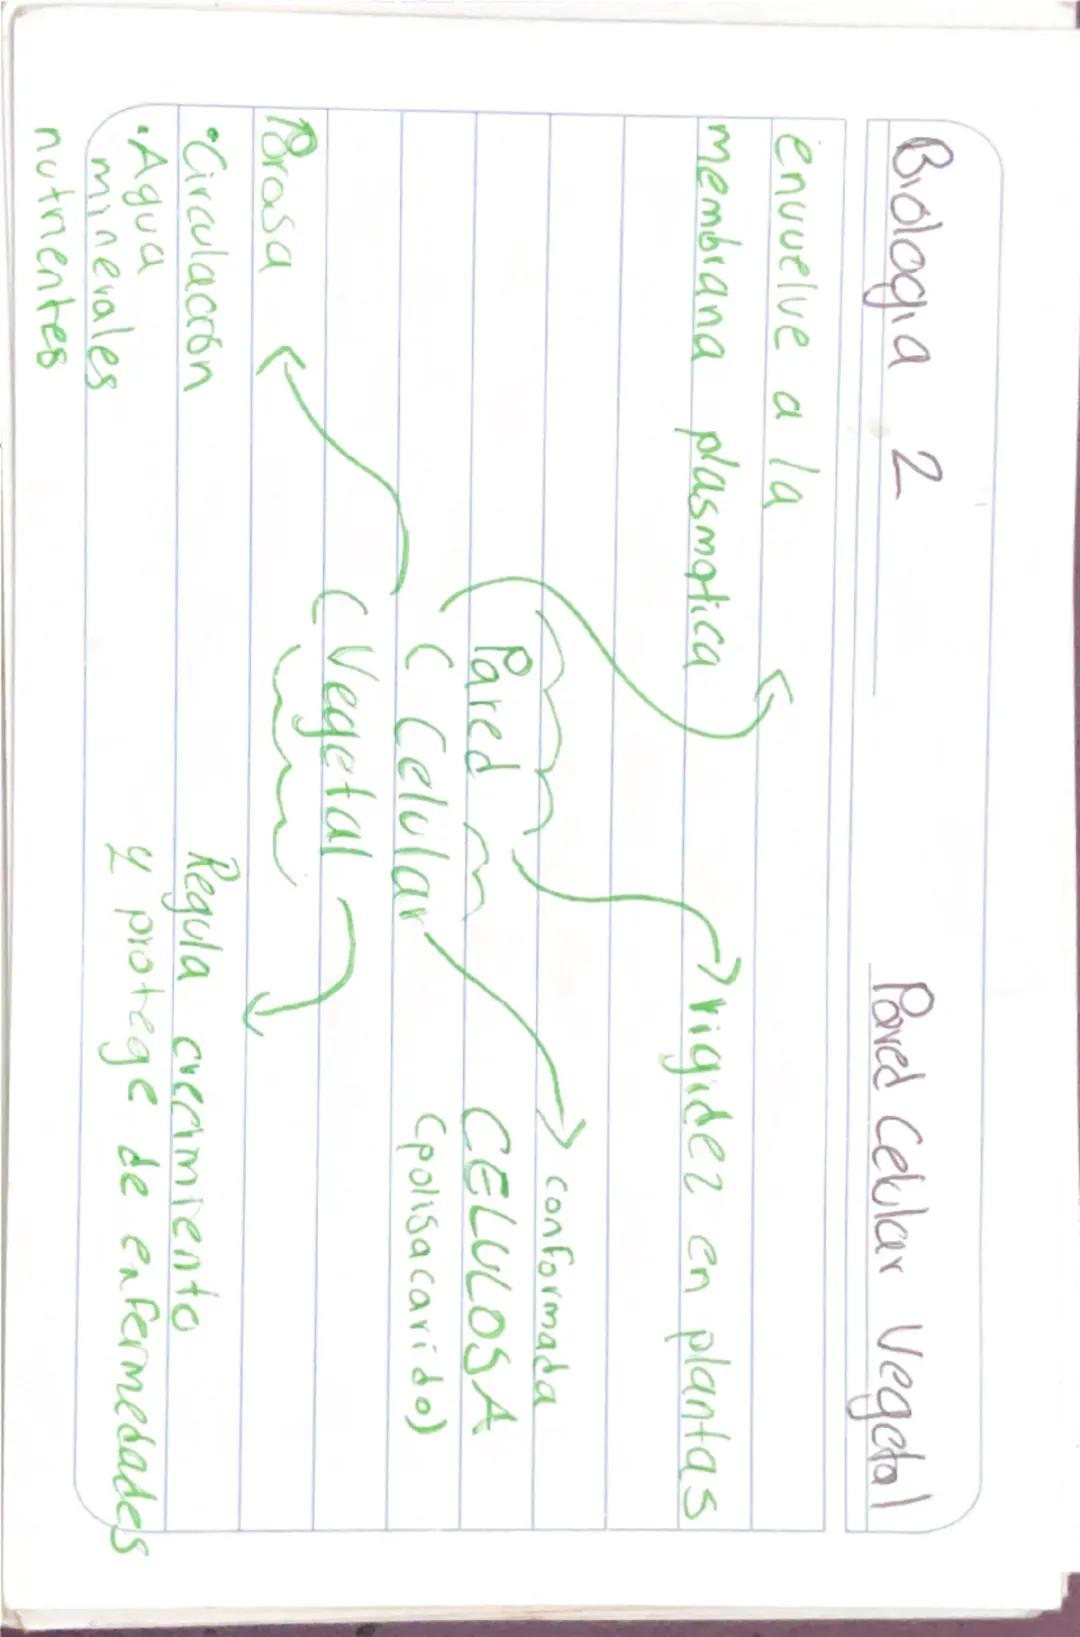 Biología 2
Pared Celular Vegetal
envuelve a la
membrana plasmatica
rigidez en plantas
Pared
Celular
Vegetal
conformada
CELULOSA
(polisacarido)
Porosa
•Circulación
•Agua
minerales
nutrientes
Regula crecimiento
y protege de enfermedades